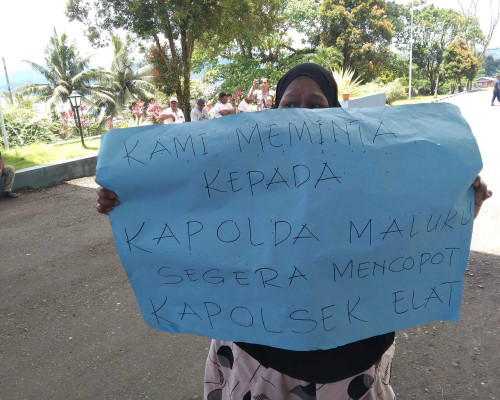 KAMI MEMINTA
KEPADA
KAPOLDA MALUKU
SEGERA MENCOPOT
KAPOLSEK ELAT